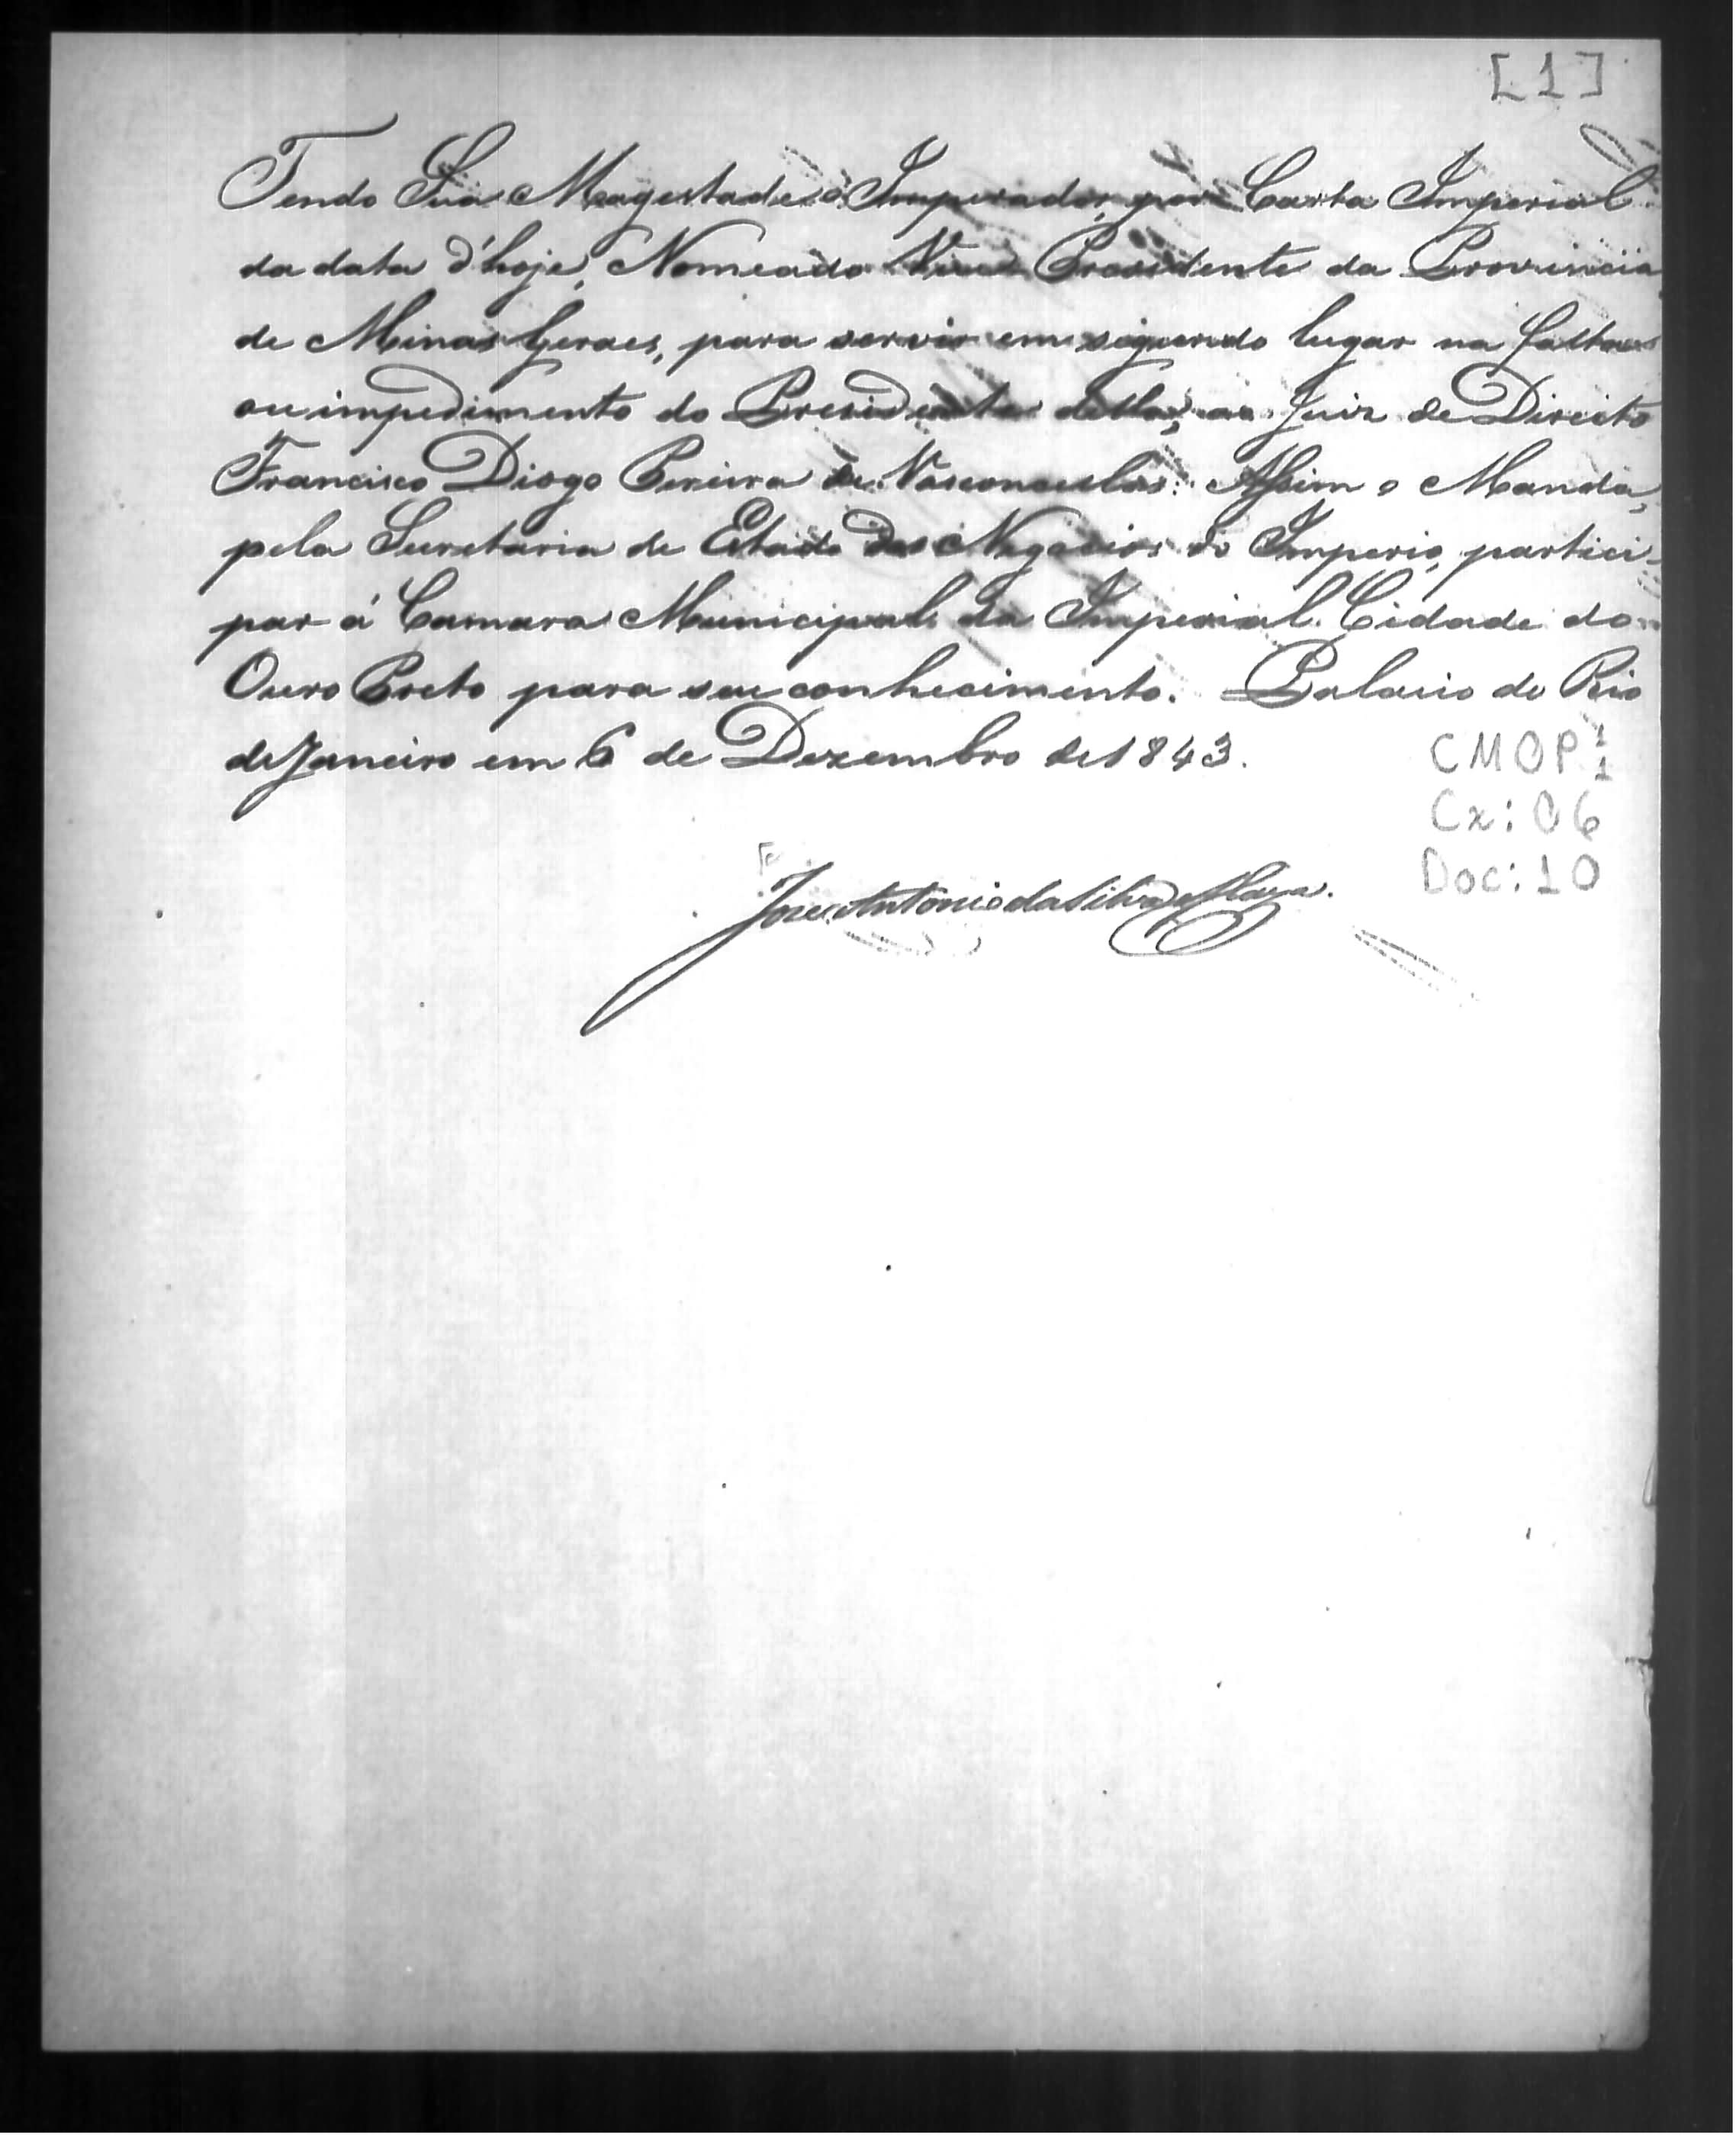 [1]
Tendo Sua Magestade o Imperador, por Carta Imperial
da data d'hoje, Nomeado Vice Presidente da Provincia
de Minas Geraes, para servir em segundo lugar na falta
ou impedimento do Presidente della, ao Juiz de Direito
Francisco Diogo Pereira de Vasconcellos: Assim o Manda,
pela Secretaria de Estado dos Negocios do Imperio, partici-
par á Camara Municipal da Imperial Cidade do
Ouro Preto para seu conhecimento. Palacio do Rio
de Janeiro em 6 de Dezembro de 1843.
CMOP 1/1
Cx: 06
Doc: 10
José Antonio da Silva Maya.